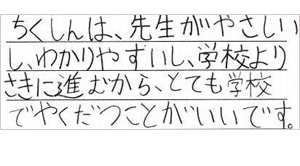 ちくしんは、先生がやさしい
し、わかりやすいし、学校より
さきに進むから、とても学校
でやくだつことがいいです。